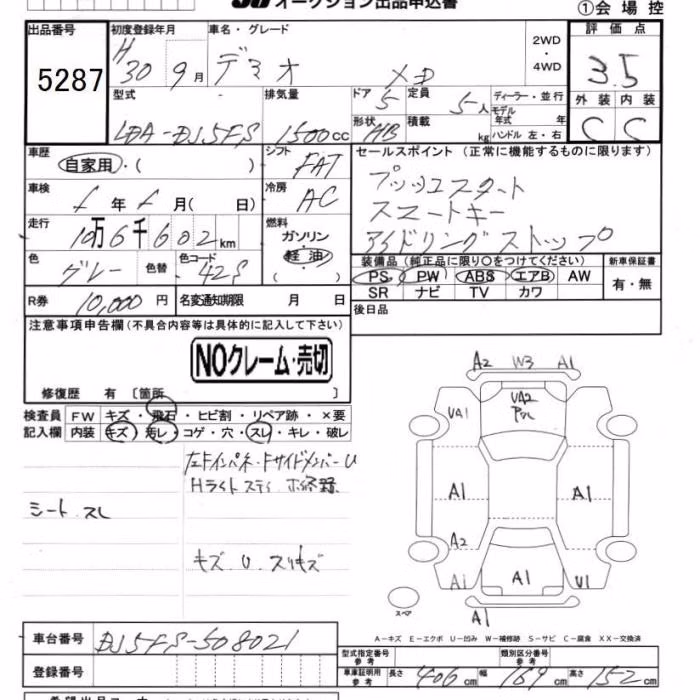 オークション出品申込書
①会場控
出品番号
5287
初度登録年月
H 30 9月
車名・グレード
デミオ XD
2WD
・
4WD
評価点
3.5
外装 内装
C C
型式
LDA-DJ5FS
排気量
1500cc
ドア 5
形状 HB
定員 5人
積載 kg
ディーラー・並行
モデル年式 年
ハンドル 左・右
車歴
自家用・( )
シフト
FAT
車検
年 月( 日)
冷房
AC
走行
10万6千602km
燃料
ガソリン
軽油
( )
色
グレー
色替
色コード
42S
R券 10,000円
名変通知期限 月 日
セールスポイント(正常に機能するものに限ります)
プッシュスタート
スマートキー
アイドリングストップ
装備品(純正品に限り○をつけてください)
PS PW ABS エアB AW
SR ナビ TV カワ
新車保証書
有・無
後日品
注意事項申告欄(不具合内容等は具体的に記入して下さい)
NOクレーム・売切
修復歴 有〔箇所 〕
検査員記入欄
FW キズ・飛石・ヒビ割・リペア跡・×要
内装 キズ・汚レ・コゲ・穴・スレ・キレ・破レ
左Fインパネ・FサイドメンバーU
Hライトステイ ホ修籍
シート スレ
キズ.U.スリキズ
A2 W3 A1
UA1
UA2
Pカレ
A1
A1
A2
A1
A1
U1
A1
スペア
A-キズ E-エクボ U-凹み W-補修跡 S-サビ C-腐食 XX-交換済
車台番号
DJ5FS-508021
登録番号
型式指定番号 参考
類別区分番号 参考
車庫証明用 参考
長さ 406cm
幅 169cm
高さ 152cm